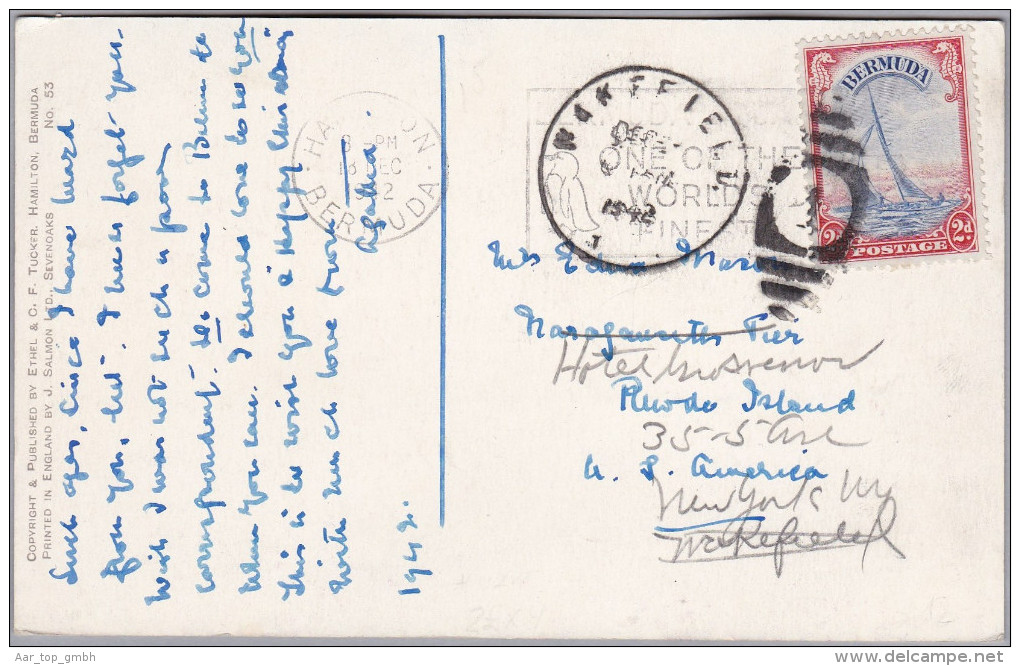 COPYRIGHT & PUBLISHED BY ETHEL & C. F. TUCKER, HAMILTON, BERMUDA
PRINTED IN ENGLAND BY J. SALMON LTD., SEVENOAKS No. 53
Such ages, since I have heard
from you, but I never forget you.
Wish I was not such a poor
correspondent. Do come to Belum to
When you can. I should love to see you
This is to wish you a Happy Christmas
with much love from
Agatha.
1942.
HAMILTON
8 PM
18 DEC
BERMUDA
WAKEFIELD
DEC
1942
ONE OF THE
WORLD'S
FINEST
BERMUDA
2d
POSTAGE
2d
Mrs Edwin
Naragansetts Pier
Hotel Grosvenor
Rhode Island
35-5 Ave
U. S. America
New York NY
Wakefield
Aar_top_gmbh
www.delcampe.net